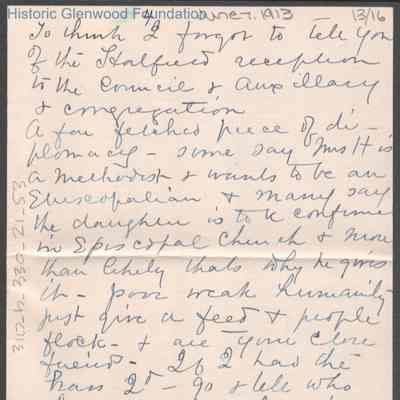 Historic Glenwood Foundation
4/ June 7. 1913 13/16
To think I forgot to tell you
of the reception
to the Council & Auxillary
& congregation
A far fetched piece of di-
plomacy - some say Mrs H is
a Methodist & wants to be an
Episcopalian & many say
the daughter is to be confirmed
in Episcopal Church & more
than likely thats why he gives
it - poor weak humanity
just give a feed & people
flock - & are your close
friends - If I had the
Brass I'd - go & tell who